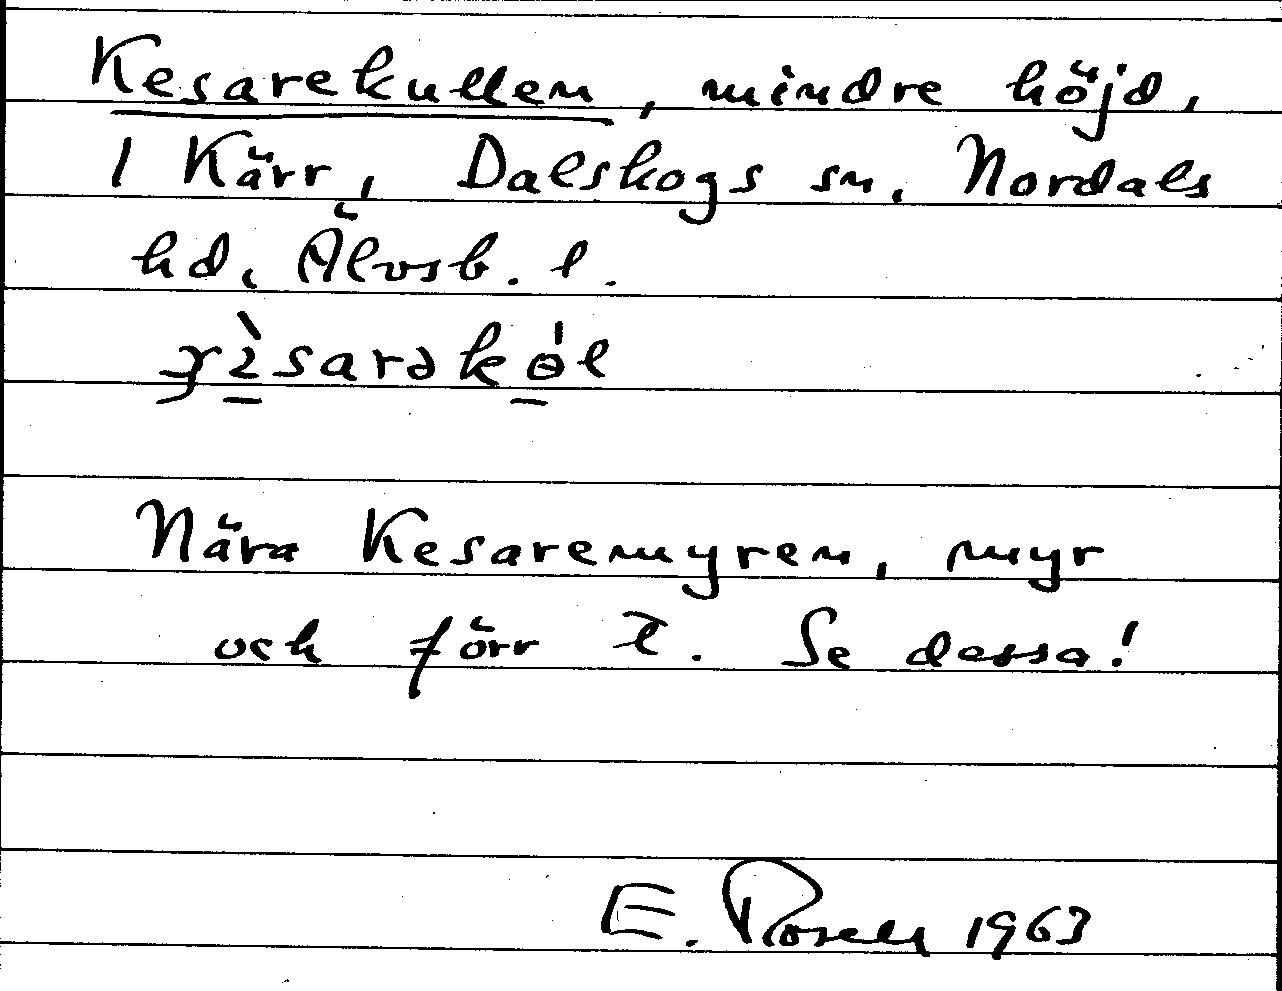 Kesarekullen, mindre höjd,
1 Kärr, Dalskogs sn, Nordals
hd, Älvsb. l.
Nära Kesaremyren, myr
och förr t. Se dessa!
E. Rosell 1963